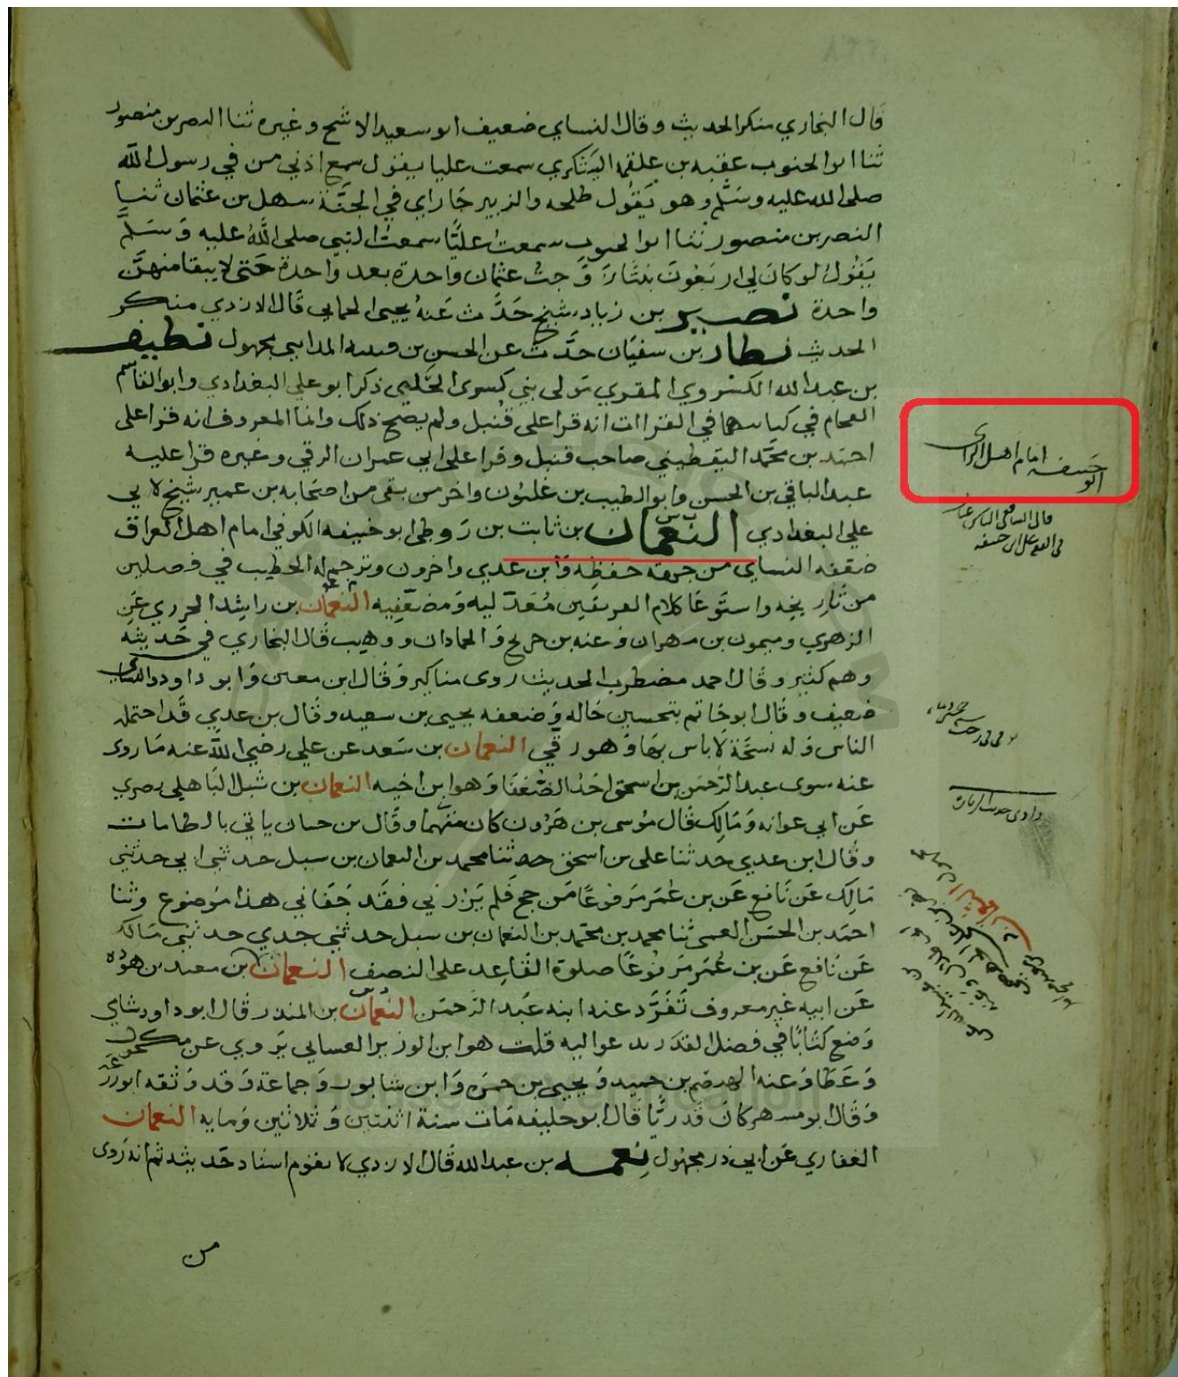 قال البخاري منكر الحديث وقال النساي ضعيف ابو سعيد الاشج وغيره ثنا النضر بن منصور
ثنا ابو الجنوب عقبة بن علقمة اليشكري سمعت عليا يقول سمع اذني من في رسول الله
صلى الله عليه وسلم وهو يقول طلحه والزبير جاراي في الجنة سهل بن عثمان ثنا
النضر بن منصور ثنا ابو الجنوب سمعت عليا سمعت النبي صلى الله عليه وسلم
يقول لو كان لي اربعون بنتا زوجت عثمان واحدة بعد واحدة حتى لا يبقا منهن
واحدة نصير بن زياد شيخ حدث عنه يحيى الحماني قال الازدي منكر
الحديث نطار بن سفيان حدث عن الحسن بن المدايني مجهول نظيف
بن عبد الله الكسروي المقري مولى بني كسرى الحلبي ذكر ابو علي البغدادي وابو القاسم
الفحام في كتابيهما في القراات انه قرا على قنبل ولم يصح ذلك وانما المعروف انه قرا على
احمد بن محمد اليقطيني صاحب قنبل وقرا على ابي عمران الرقي وغيره قرا عليه
عبد الباقي بن الحسن وابو الطيب بن غلبون واخر من بقي من اصحابه بن عمير شيخ لابي
علي البغدادي النعمان بن ثابت بن زوطى ابو حنيفه الكوفي امام اهل العراق
ضعفه النساي من جهة حفظه وابن عدي واخرون وترجم له الخطيب في فصلين
من تاريخه واستوعا كلام الفريقين معدليه ومضعفيه النعمان بن راشد الجزري عن
الزهري وميمون بن مهران وعنه بن جريج والحمادان ووهيب قال البخاري في حديثه
وهم كثير وقال احمد مضطرب الحديث روى مناكير وقال ابن معين وابو داود والنساي
ضعيف وقال ابو حاتم بتحسين حاله وضعفه يحيى بن سعيد وقال بن عدي قد احتمله
الناس وله نسخة لا باس بها وهو رقي النعمان بن سعد عن علي رضي الله عنه ما روى
عنه سوى عبد الرحمن بن اسحق احد الضعفا وهو ابن اخيه النعمان بن شبل الباهلي بصري
عن ابي عوانه ومالك قال موسى بن هرون كان متهما وقال بن حبان ياتي بالطامات
وقال ابن عدي حدثنا علي بن اسحق ثنا محمد بن النعمان بن شبل حدثني ابي حدثني
مالك عن نافع عن بن عمر مرفوعا من حج فلم يزرني فقد جفاني هذا موضوع وثنا
احمد بن الحسن ثنا محمد بن محمد بن النعمان بن شبل حدثني جدي حدثني مالك
عن نافع عن بن عمر مرفوعا صلوة القاعد على النصف النعمان بن معبد بن هوذه
عن ابيه غير معروف تفرد عنه ابنه عبد الرحمن النعمان بن المنذر قال ابو داود شامي
وضع كتابا في فضل القدر يدعو اليه قلت هو ابن الوزير الغساني يروي عن مكحول
وعطا وعنه الهيثم بن حميد ويحيى بن حمزه وابن شابور وجماعة وقد وثقه ابو زرعة
وقال ابو مسهر كان قدريا قال ابو خليفه مات سنة اثنتين وثلاثين ومايه النعمان
الغفاري عن ابي ذر مجهول نعمه بن عبد الله قال الازدي لا يقوم اسناد حديثه ثم انه روى
من
ابو حنيفه امام اهل الراى
قال الشافعي الناس عيال
في الفقه على ابي حنيفه